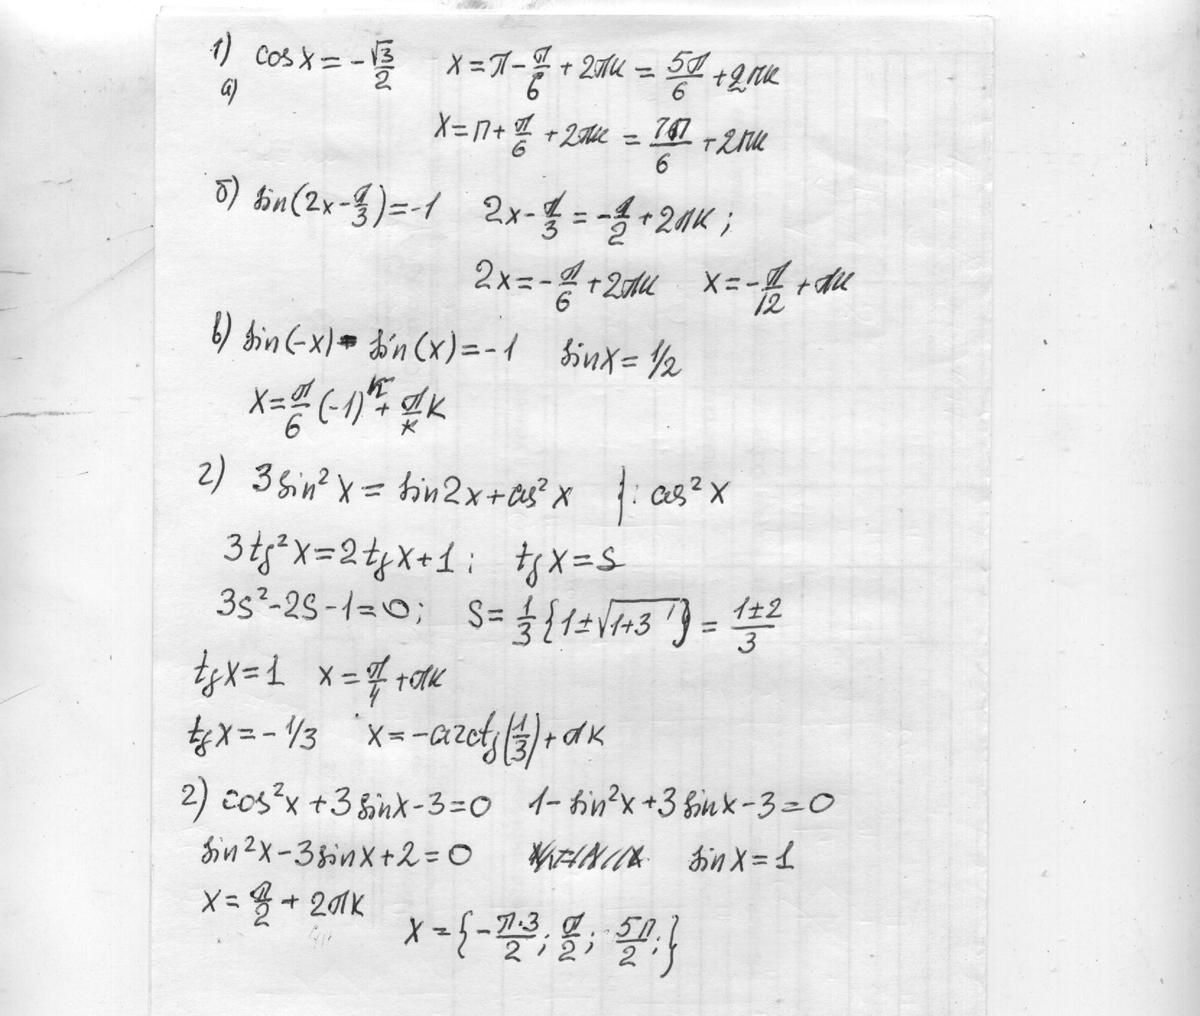 1) cos x = -√3/2   x = π - π/6 + 2πк = 5π/6 + 2πк
а)
x = π + π/6 + 2πк = 7π/6 + 2πк
б) sin(2x - π/3) = -1   2x - π/3 = -π/2 + 2πк ;
2x = -π/6 + 2πк   x = -π/12 + πк
в) sin(-x) - sin(x) = -1   sin x = 1/2
x = π/6 (-1)^к + π/к к
г) 3 sin² x = sin 2x + cos² x   } : cos² x
3 tg² x = 2 tg x + 1 ;   tg x = s
3s² - 2s - 1 = 0 ;   s = 1/3 {1 ± √(1+3)} = (1±2)/3
tg x = 1   x = π/4 + πк
tg x = - 1/3   x = - arctg(1/3) + πк
2) cos² x + 3 sin x - 3 = 0   1 - sin² x + 3 sin x - 3 = 0
sin² x - 3 sin x + 2 = 0   sin x = 1
x = π/2 + 2πк
x = { - π·3/2 ; π/2 ; 5π/2 ; }